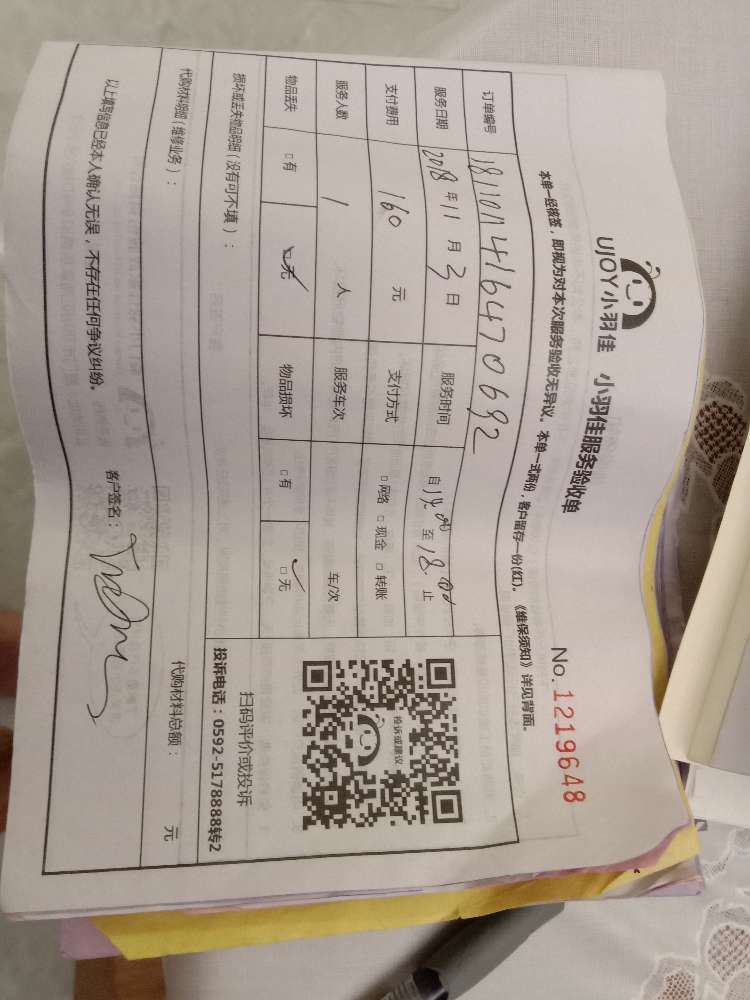 UJOY小羽佳 小羽佳服务验收单
No.1219648
本单一经核签，即视为对本次服务验收无异议。本单一式两份，客户留存一份(红)。《维保须知》详见背面。
订单编号 181101141647069２
服务日期 2018年11月3日 服务时间 自14.00至18.00止
支付费用 160元 支付方式 □网络 □现金 □转账
服务人数 1人 服务车次 车/次
物品丢失 □有 □无 物品损坏 □有 □无
投诉或建议
扫码评价或投诉
投诉电话：0592-5178888转2
损坏或丢失物品明细（没有可不填）：
代购材料明细（维修业务）： 代购材料总额： 元
以上填写信息已经本人确认无误，不存在任何争议纠纷。 客户签名：